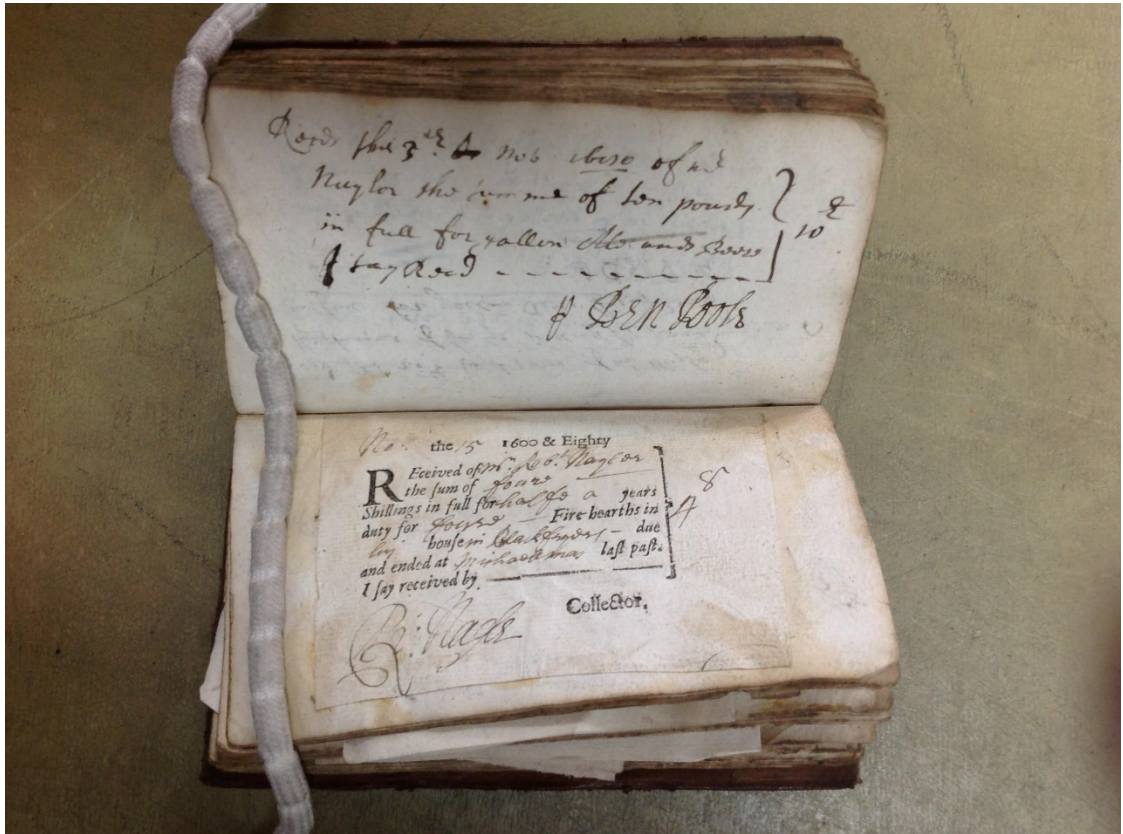 Recd the 3th Nov 1680 of mr
Naylor the summe of ten pounds
in full for gallon Ale and Beere
I say Recd - - - - - - - - -
10 £
p Ben Poole
No: the 15 1600 & Eighty
REceived of mr Robt. Naylor
the sum of foure
Shillings in full for halfe a years
duty for foure Fire-hearths in
his house in Blackfryers due
and ended at Michaellmas last past.
I say received by
4 8
Collector.
Ri: Nagle